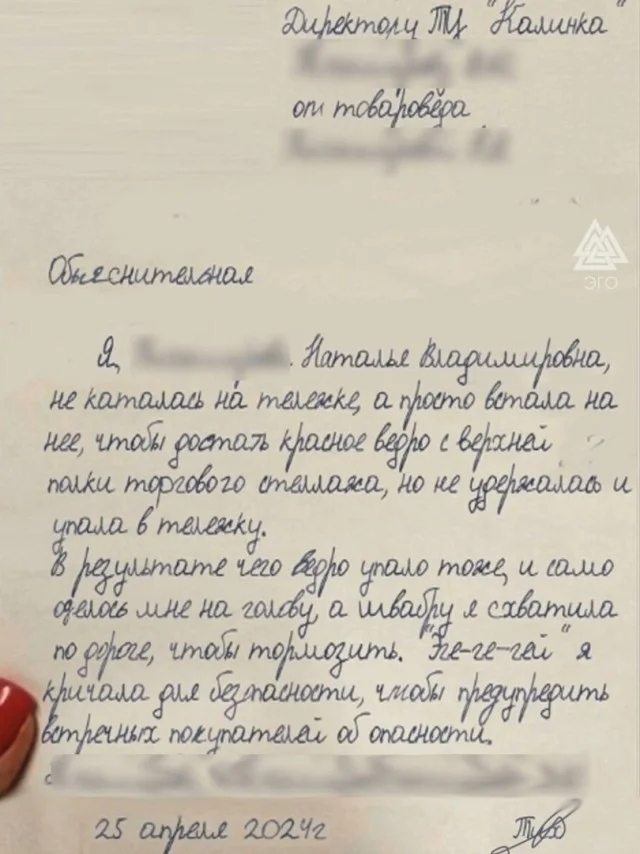 Директору ТЦ "Калинка"
от товароведа
ЭГО
Объяснительная
Я, Наталье Владимировна,
не каталась на тележке, а просто встала на
нее, чтобы достать красное ведро с верхней
полки торгового стеллажа, но не удержалась и
упала в тележку.
В результате чего ведро упало тоже, и само
оделось мне на голову, а швабру я схватила
по дороге, чтобы тормозить. "Эге-ге-гей" я
кричала для безопасности, чтобы предупредить
встречных покупателей об опасности.
25 апреля 2024г